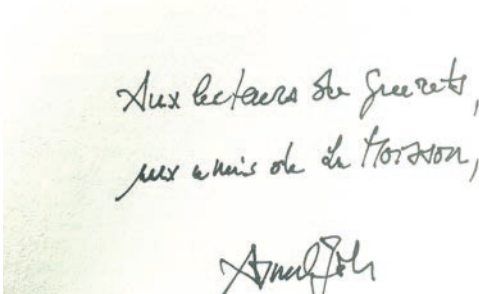 Aux lecteurs de Guerets,
aux amis de La Moisson,